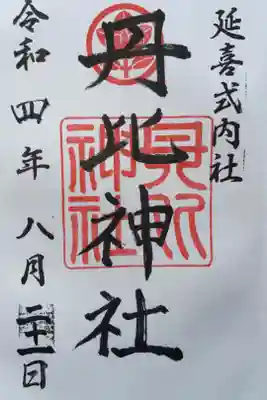 延喜式内社
丹比神社
令和四年八月二十一日